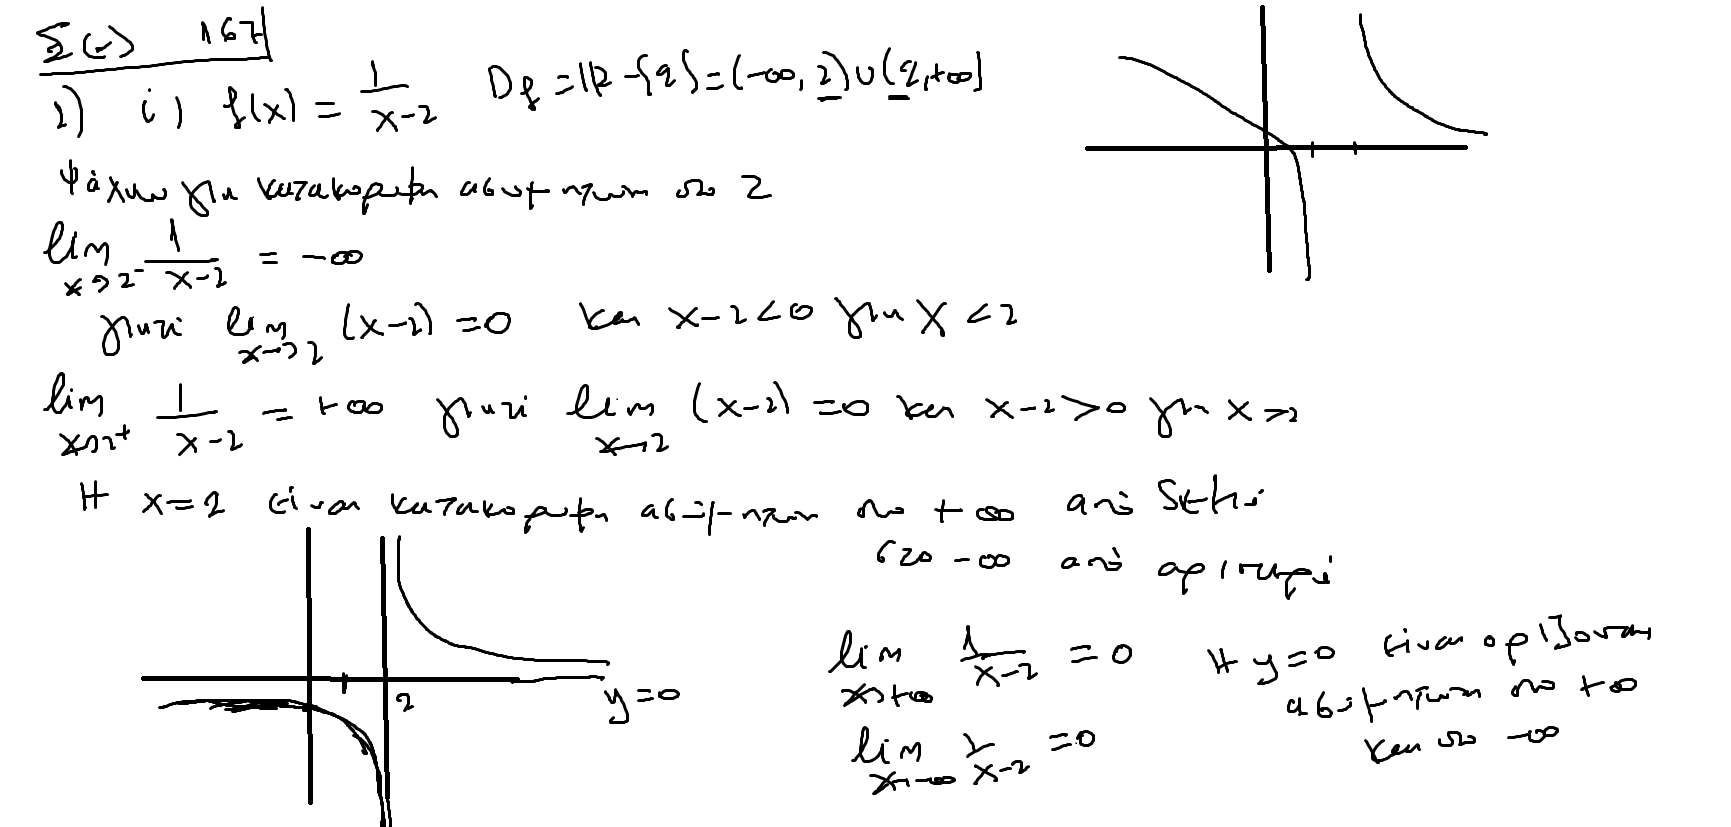 Σελ 167
1) i) f(x) = 1/(x-2) D_f = ℝ - {2} = (-∞, 2) ∪ (2, +∞)
Ψάχνω για κατακόρυφη ασύμπτωτη στο 2
lim_{x→2⁻} 1/(x-2) = -∞
γιατί lim_{x→2} (x-2) = 0 και x-2<0 για x<2
lim_{x→2⁺} 1/(x-2) = +∞ γιατί lim_{x→2} (x-2) = 0 και x-2>0 για x>2
Η x=2 είναι κατακόρυφη ασύμπτωτη στο +∞ από δεξιά
στο -∞ από αριστερά
2 y=0
lim_{x→+∞} 1/(x-2) = 0 Η y=0 είναι οριζόντια
ασύμπτωτη στο +∞
lim_{x→-∞} 1/(x-2) = 0 και στο -∞